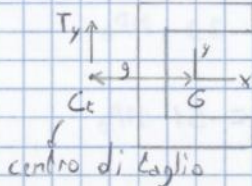 Ty
g
y
x
Ct
G
centro di taglio